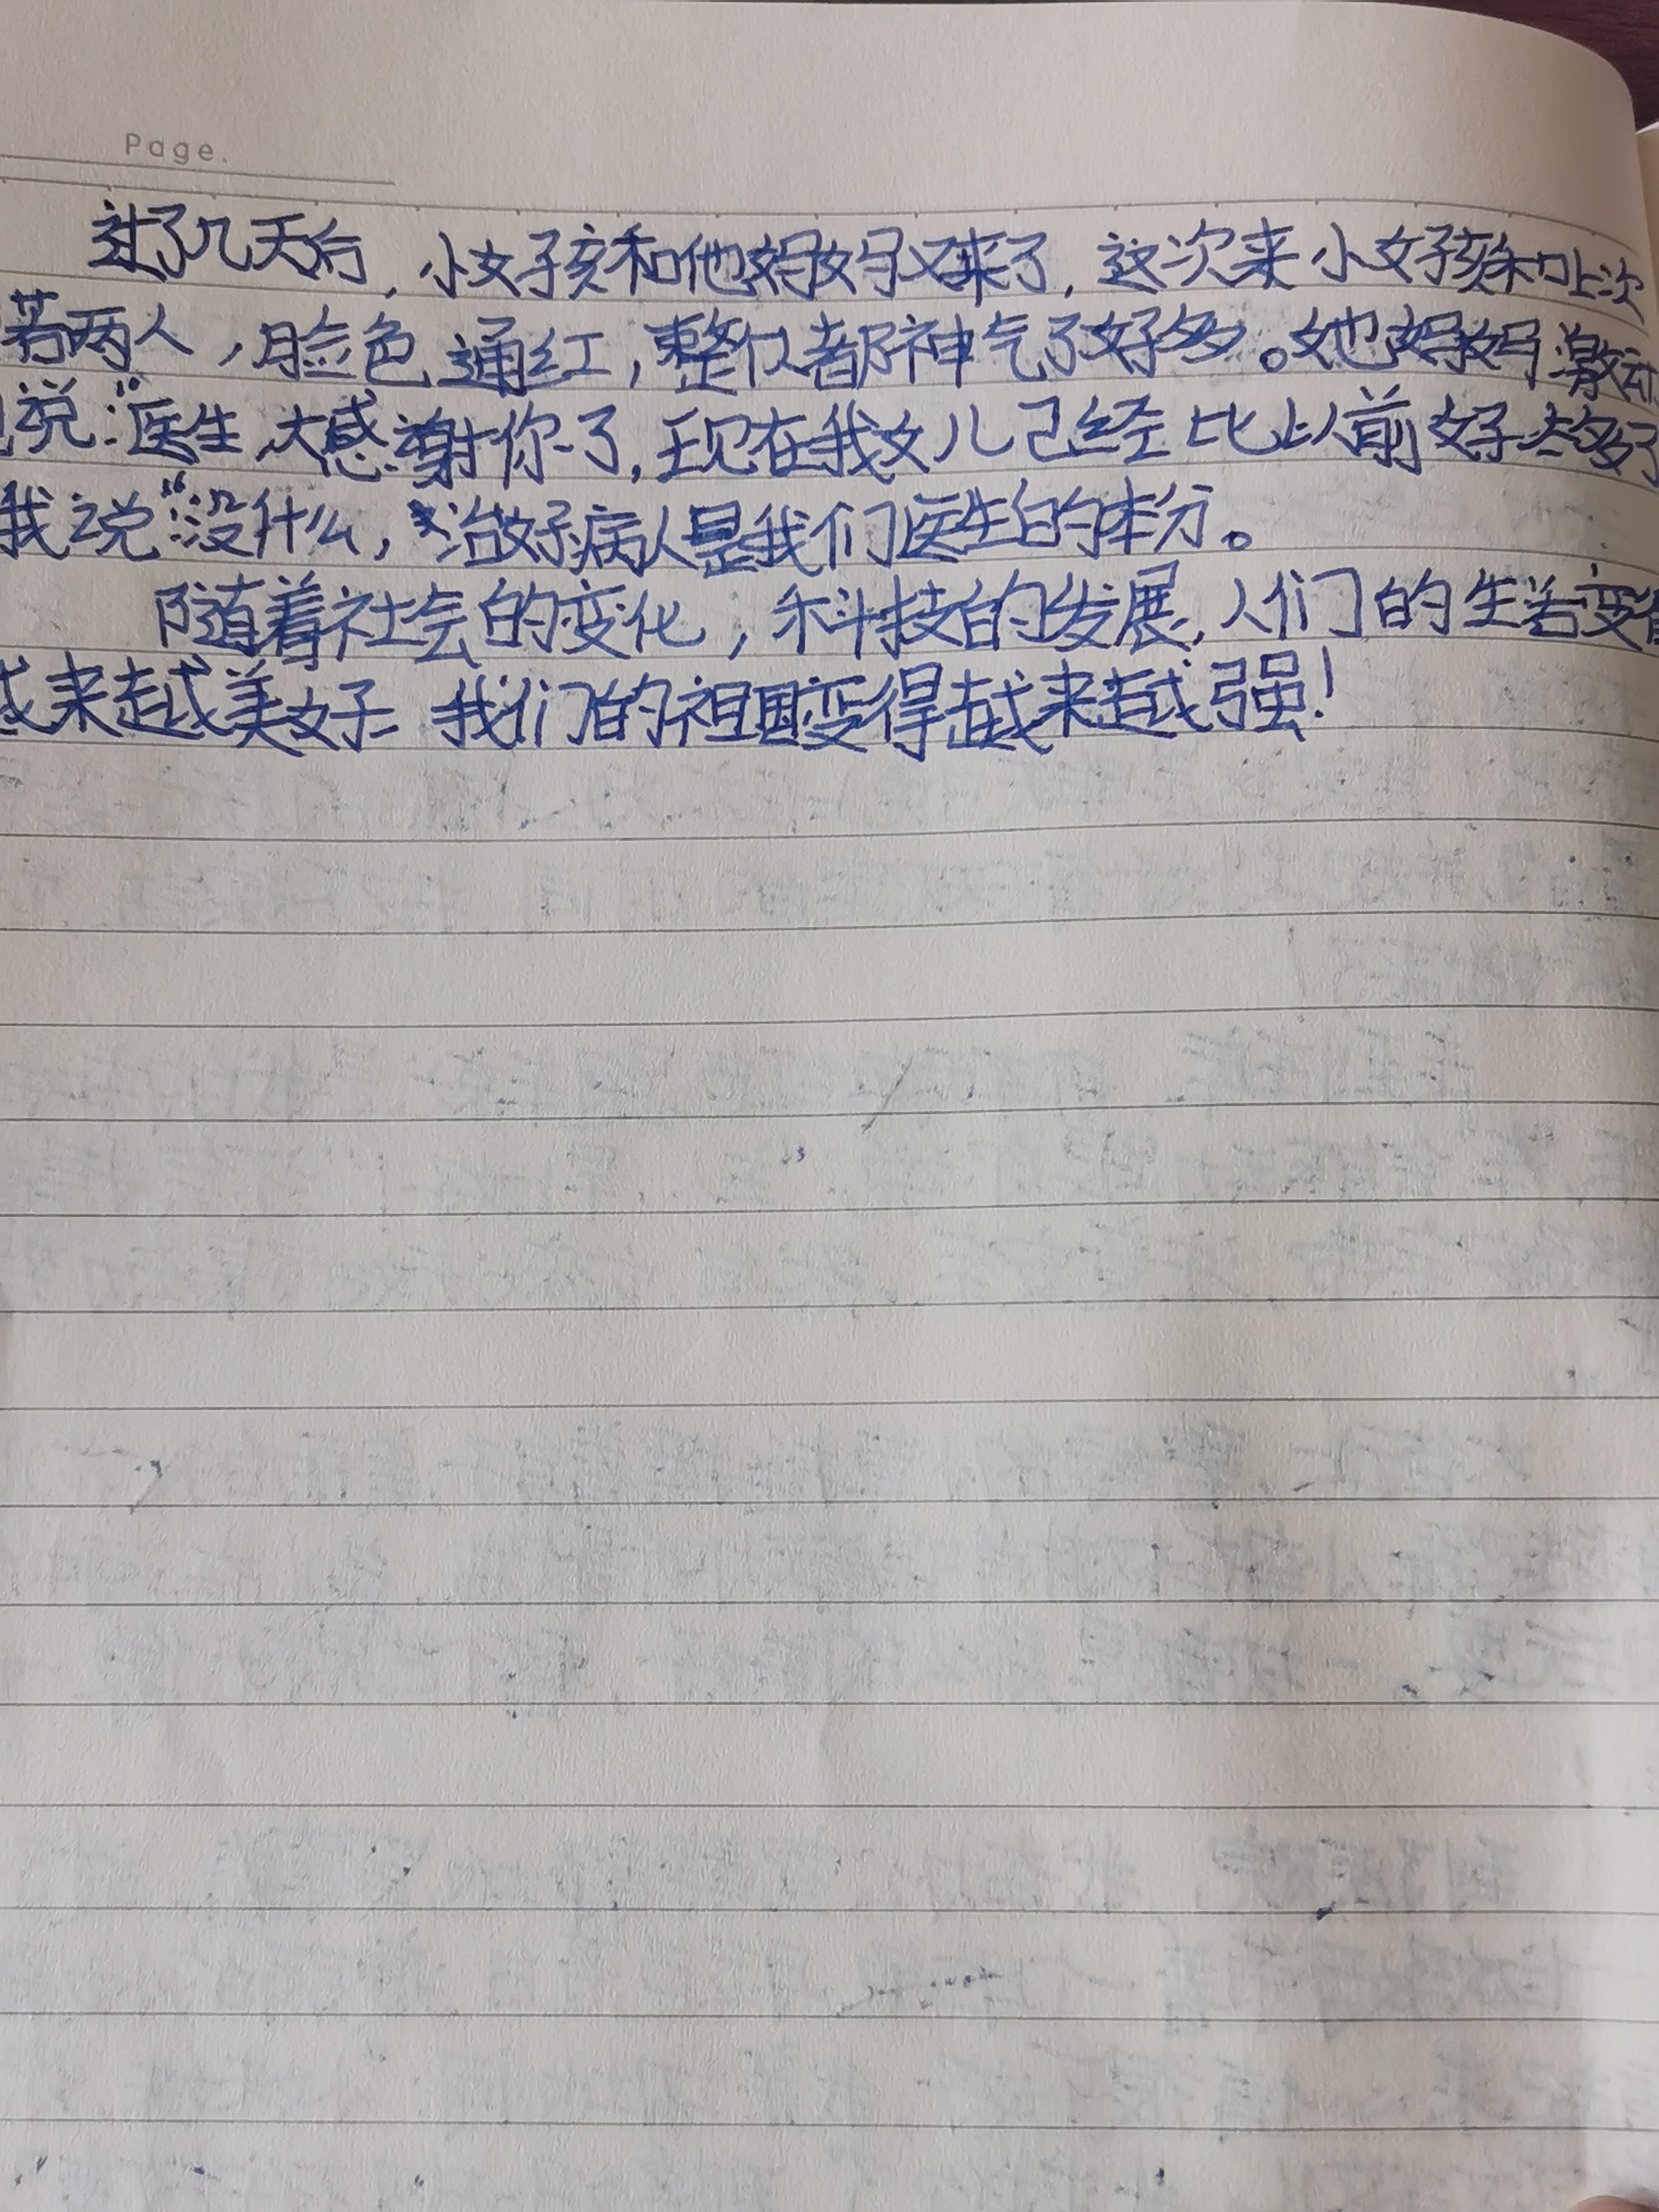 Page.
过了几天后，小女孩和他妈妈又来了，这次来小女孩和上次
若两人，脸色通红，整仅都神气了好多。她妈妈激动
说："医生，大感谢你了，现在我女儿己经比以前好太多了
我说："没什么，治好病人是我们医生的本分。
随着社会的变化，科技的发展，人们的生若变得
越来越美好 我们的祖国变得越来越强！